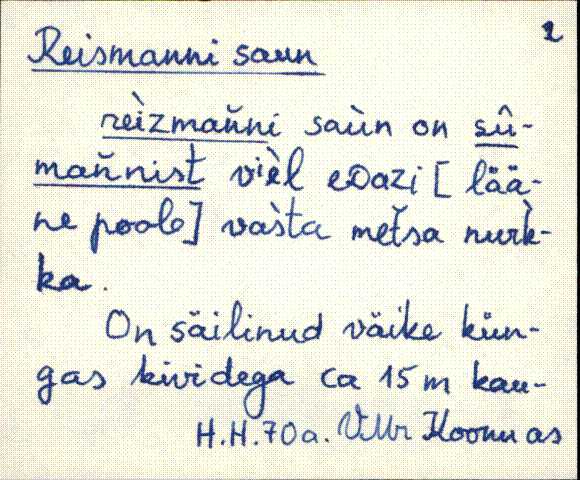 2
Reismanni saun
reìzmaňni saùn on sû-
maňnist vièl eDazi [lää-
ne poole] vàsta metšsa nurk̀-
ka.
On säilinud väike kün-
gas kividega ca 15 m kau-
H.H. 70 a. VMr Koonu as